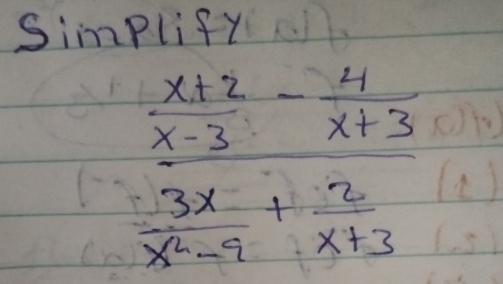 Simplify
x+2 - 4
x-3 x+3
3x + 2
x²-9 x+3